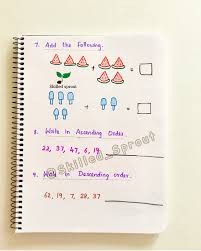 7. Add the Following.
+ =
Skilled sprout
+ =
8. Write in Ascending Order
22, 37, 47, 6, 19
@Skilled_Sprout
9. Write in Descending order.
62, 19, 7, 28, 37